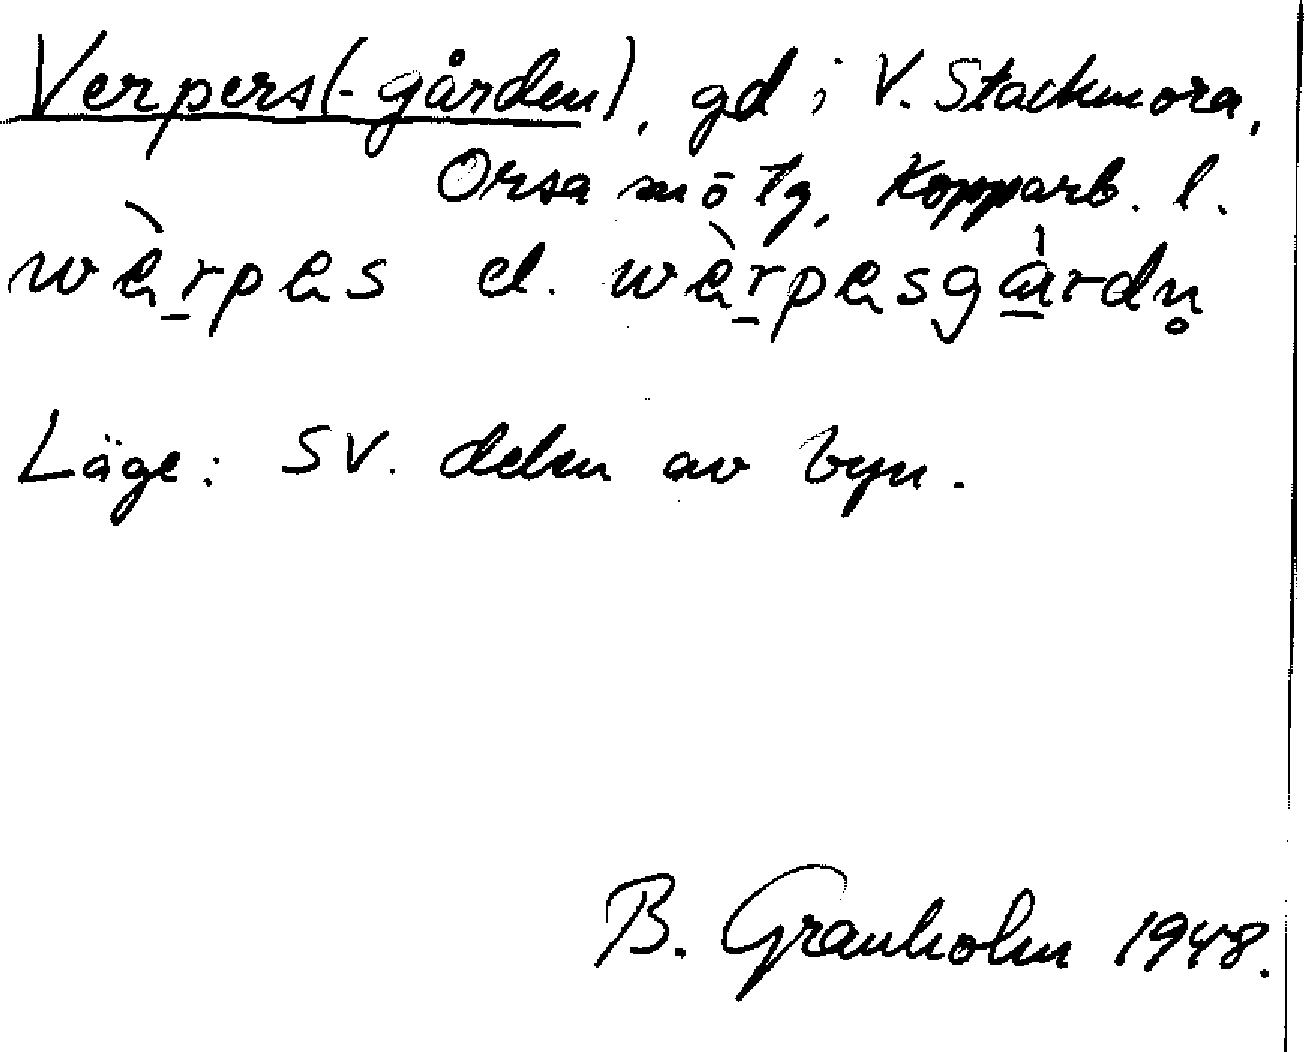 Verpers(-gården), gd i V. Stackmora,
Orsa sn ö tg, Kopparb. l.
wèrpes el. wèrpesgàrdn̥
Läge: SV. delen av byn.
B. Granholm 1948.